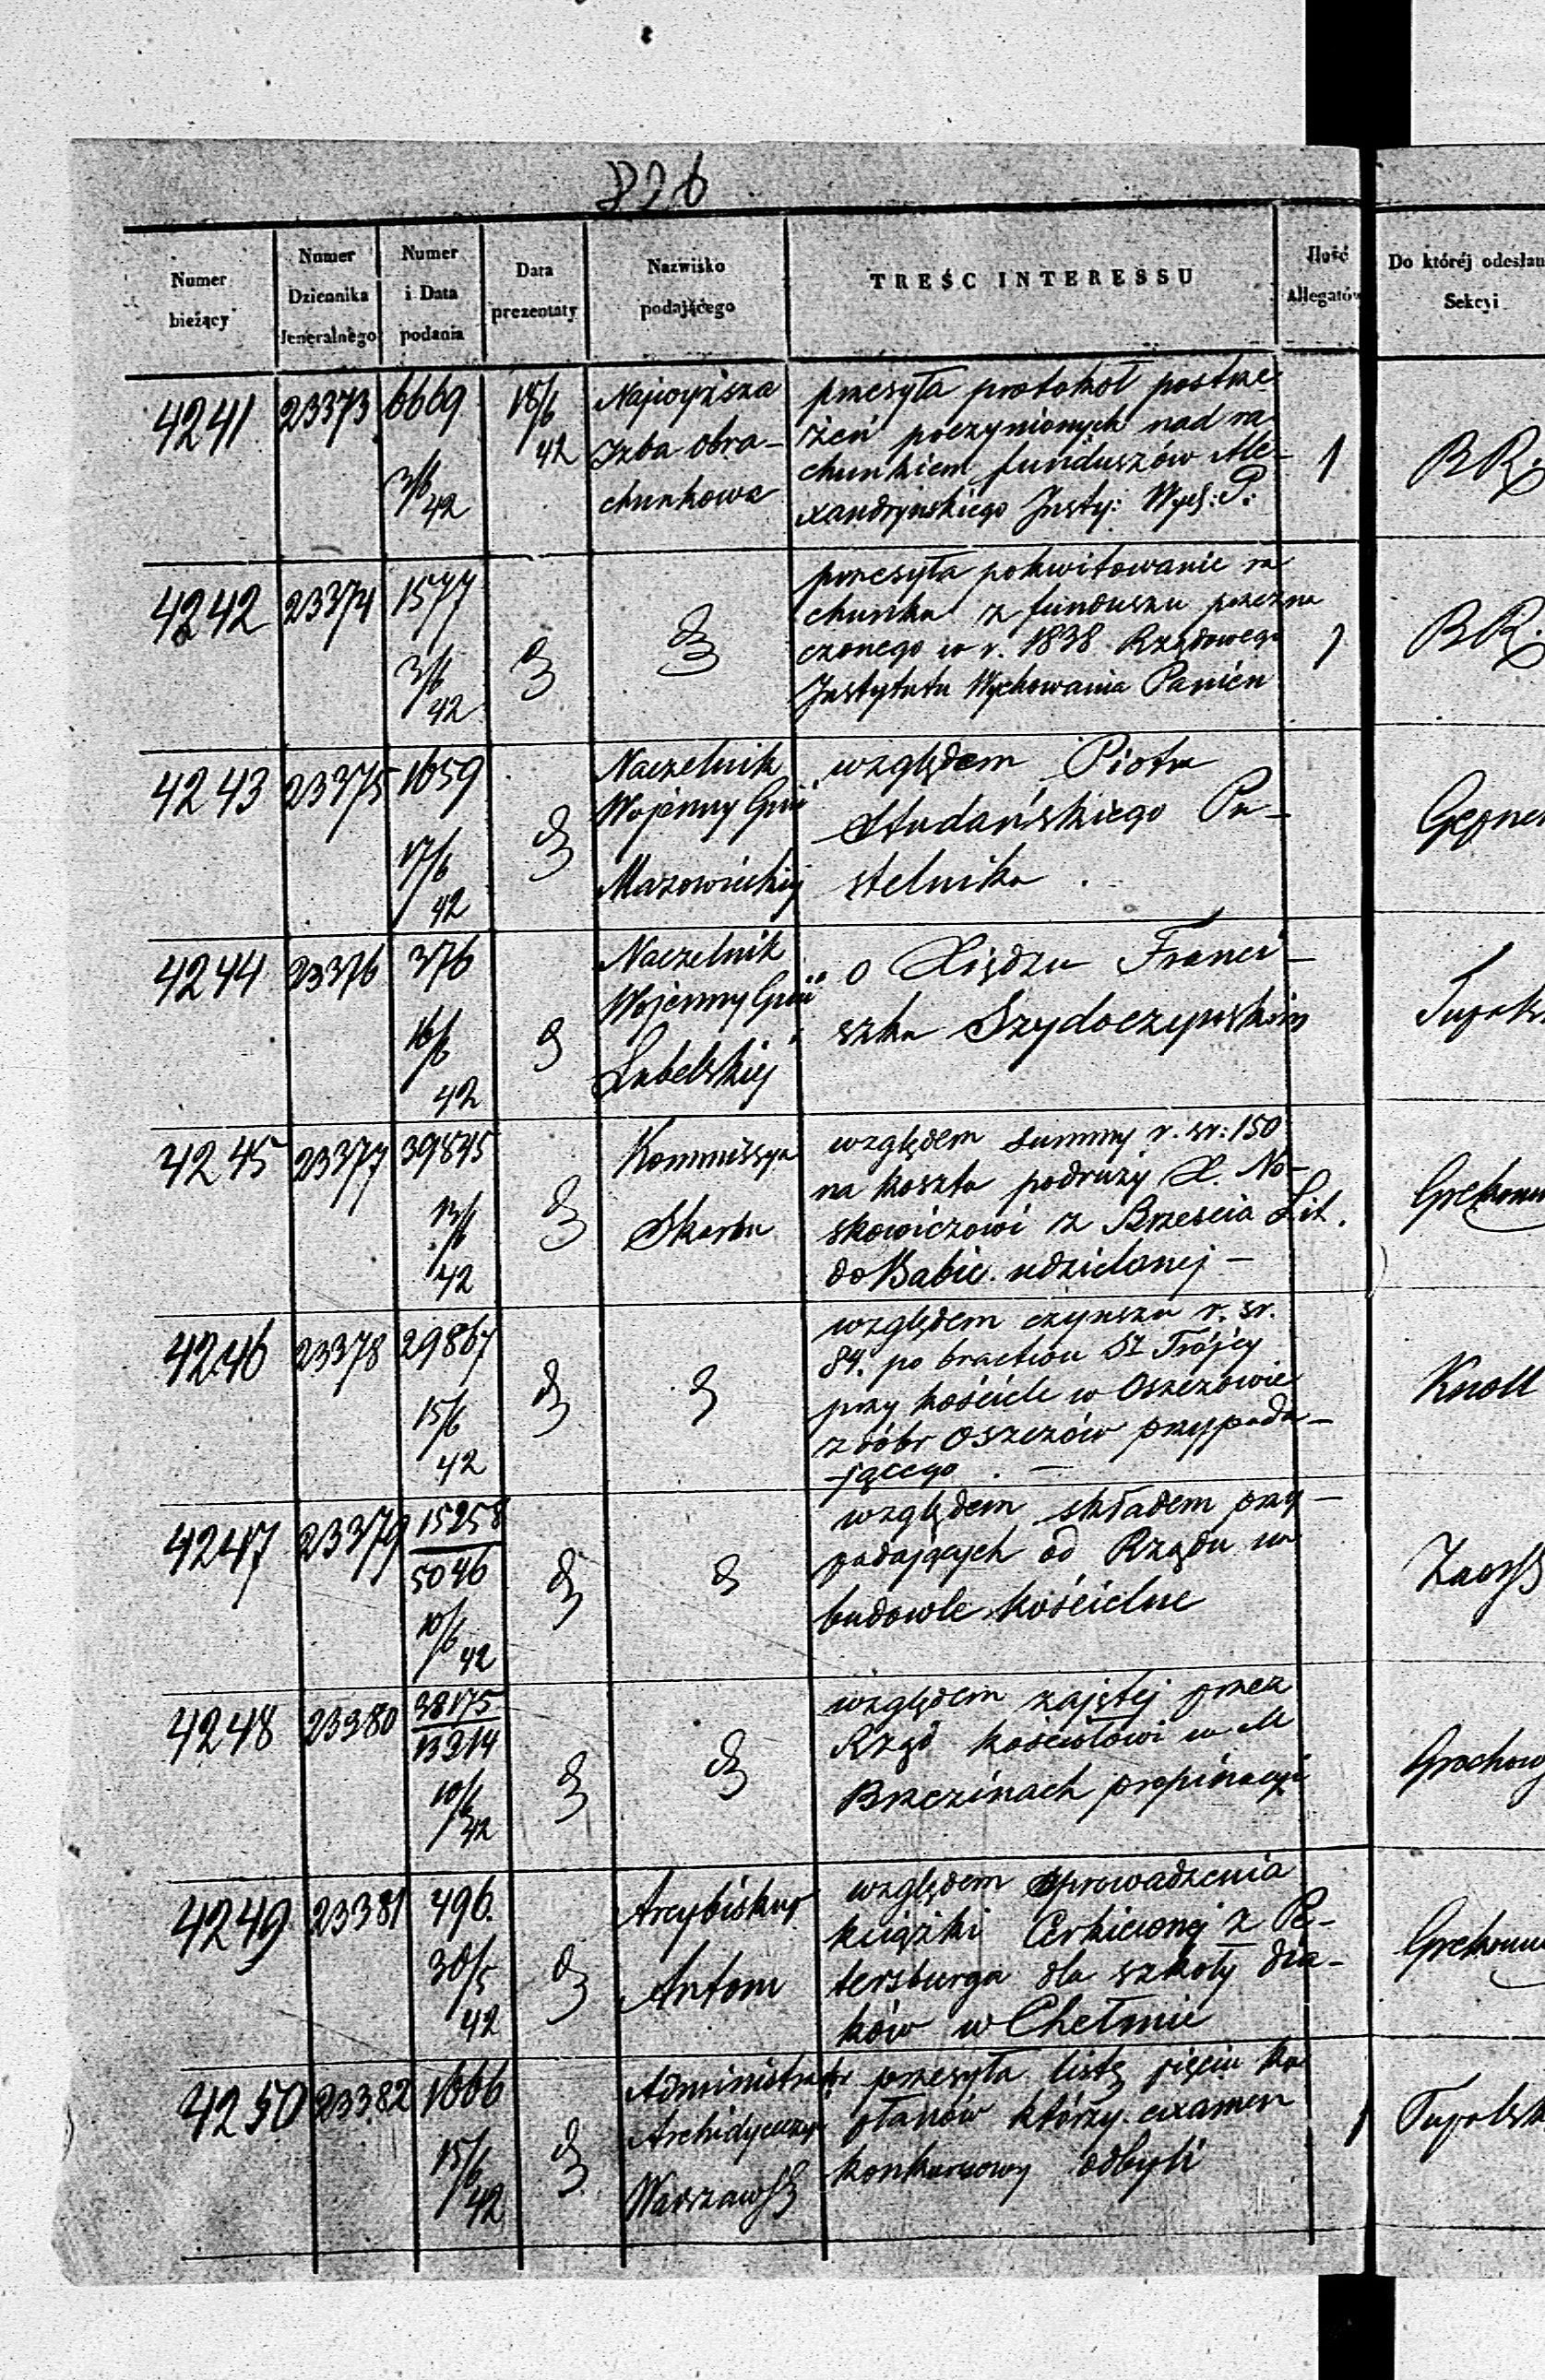 826
Numer bieżący
Numer Dziennika Jeneralnego
Numer i Data podania
Data prezentaty
Nazwisko podającego
TREŚĆ INTERESSU
Ilość Allegatów
Do któréj odesłan
Sekcyi
4241 23373 6669 3/6 42 18/6 42
Najwyższa
Izba obra-
chunkowa
przesyła protokoł postrze
żeń poczynionych nad ra
chunkiem funduszów Ale-
xandryjskiego Insty: Wych: P:
1
BR.
4242 23374 1577 3/6 42
przesyła pokwitowanie ra
chunku z funduszu przezna
czonego w r. 1838 Rządowego
Instytutu Wychowania Panien
1
BR.
4243 23375 1659 17/6 42
Naczelnik
Wojenny Gnii
Mazowieckiej
względem Piotra
Studańskiego Pu-
stelnika.
4244 23376 376 16/6 42
Naczelnik
Wojenny Gnii
Lubelskiej
o Xiędzu Franci-
szku Szydoczyńskim
4245 23377 39845 13/6 42
Kommissya
Skarbu
względem summy r. sr: 150
na koszta podróży X. No-
skowiczowi z Brześcia Lit.
do Babic udzielonej -
4246 23378 29867 15/6 42
względem czynszu r. sr.
84. po bractwu St Trójcy
przy kościele w Oszczowie
z dóbr Oszczów przypada-
-jącego. -
Knoll
4247 23379 15258 5046 10/6 42
względem składem przy-
padających od Rządu na
budowle kościelne
4248 23380 38175 13314 10/6 42
względem zajętej przez
Rząd kościołowi w M
Brzezinach propinacyi
Grochow
4249 23381 496. 30/5 42
Arcybiskup
Antoni
względem sprowadzenia
książki Cerkiewnej z Pe-
tersburga dla szkoły dia-
ków w Chełmie
4250 23382 1666 15/6 42
Administrator
Archidyecezyi
Warszaws
przesyła listę pięciu ka
płanów którzy examen
konkursowy odbyli
1
Tupalsk